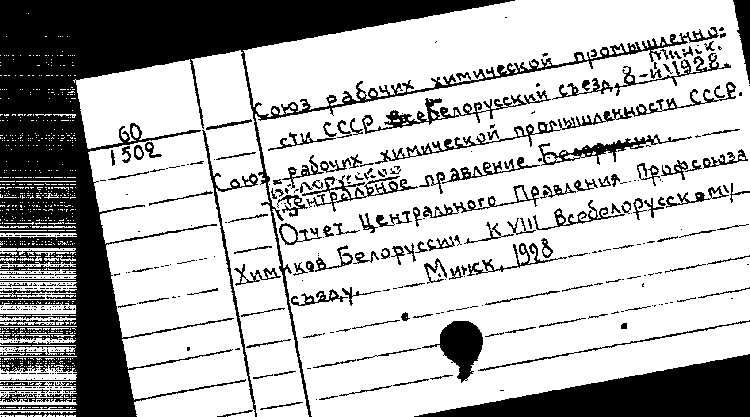 60
1502
Союз рабочих химической промышленно-
сти СССР. Всебелорусский съезд, 8-й, Минск. 1928.
Союз рабочих химической промышленности СССР.
Белорусское
Центральное правление Белоруссии.
Отчет Центрального Правления Профсоюза
Химиков Белоруссии. К VIII Всебелорусскому
съезду. Минск, 1928